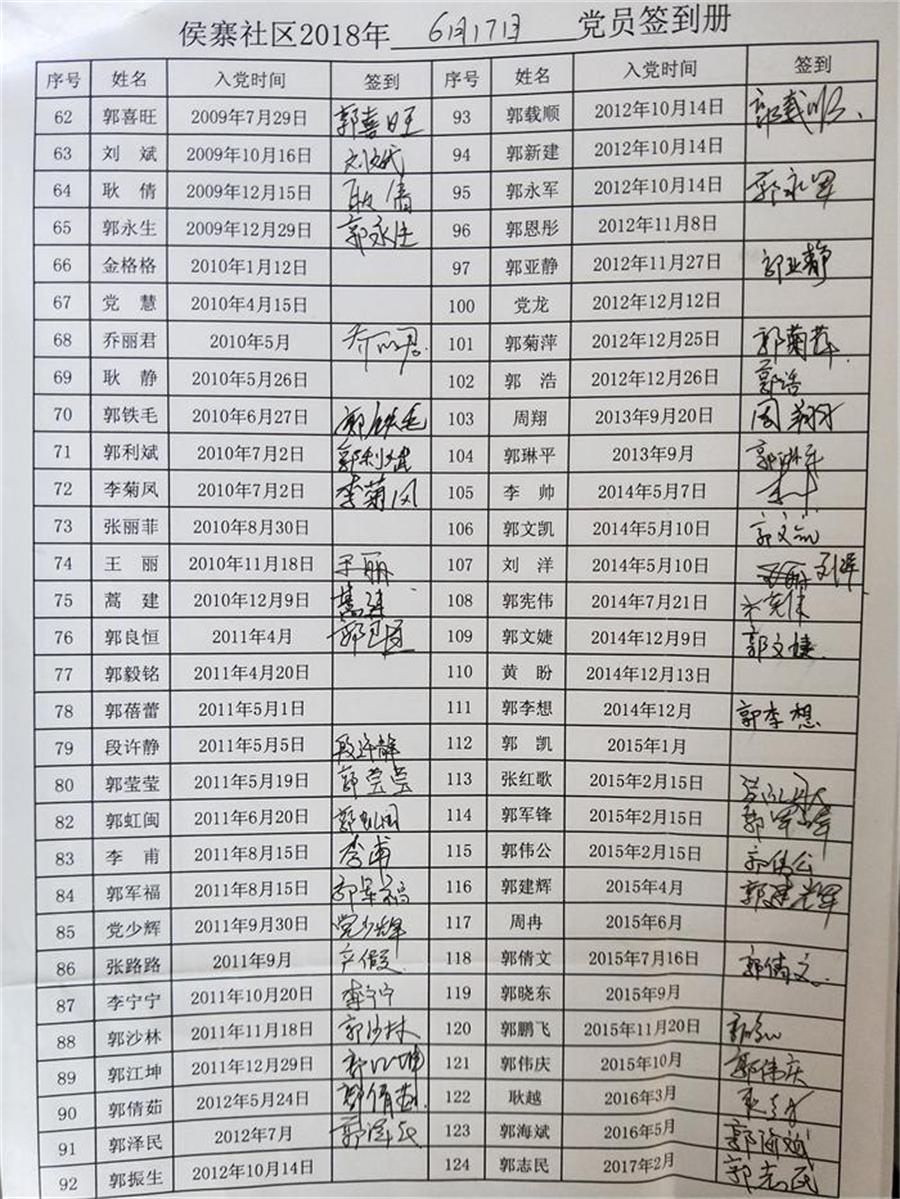 侯寨社区2018年 6月17日 党员签到册
序号 姓名 入党时间 签到 序号 姓名 入党时间 签到
62 郭喜旺 2009年7月29日 郭喜旺 93 郭载顺 2012年10月14日 郭载顺
63 刘 斌 2009年10月16日 刘斌 94 郭新建 2012年10月14日
64 耿 倩 2009年12月15日 耿倩 95 郭永军 2012年10月14日 郭永军
65 郭永生 2009年12月29日 郭永生 96 郭恩彤 2012年11月8日
66 金格格 2010年1月12日 97 郭亚静 2012年11月27日 郭亚静
67 党 慧 2010年4月15日 100 党龙 2012年12月12日
68 乔丽君 2010年5月 乔丽君 101 郭菊萍 2012年12月25日 郭菊萍
69 耿 静 2010年5月26日 102 郭 浩 2012年12月26日 郭浩
70 郭铁毛 2010年6月27日 郭铁毛 103 周翔 2013年9月20日 周翔
71 郭利斌 2010年7月2日 郭利斌 104 郭琳平 2013年9月 郭琳平
72 李菊凤 2010年7月2日 李菊凤 105 李 帅 2014年5月7日
73 张丽菲 2010年8月30日 106 郭文凯 2014年5月10日 郭文凯
74 王 丽 2010年11月18日 王丽 107 刘 洋 2014年5月10日 刘洋
75 蒿 建 2010年12月9日 蒿建 108 郭宪伟 2014年7月21日
76 郭良恒 2011年4月 109 郭文婕 2014年12月9日 郭文婕
77 郭毅铭 2011年4月20日 110 黄 盼 2014年12月13日
78 郭蓓蕾 2011年5月1日 111 郭李想 2014年12月 郭李想
79 段许静 2011年5月5日 段许静 112 郭 凯 2015年1月
80 郭莹莹 2011年5月19日 郭莹莹 113 张红歌 2015年2月15日 张红歌
82 郭虹闽 2011年6月20日 郭虹闽 114 郭军锋 2015年2月15日 郭军锋
83 李 甫 2011年8月15日 李甫 115 郭伟公 2015年2月15日 郭伟公
84 郭军福 2011年8月15日 郭军福 116 郭建辉 2015年4月 郭建辉
85 党少辉 2011年9月30日 党少辉 117 周冉 2015年6月
86 张路路 2011年9月 产假 118 郭倩文 2015年7月16日 郭倩文
87 李宁宁 2011年10月20日 李宁宁 119 郭晓东 2015年9月
88 郭沙林 2011年11月18日 郭沙林 120 郭鹏飞 2015年11月20日
89 郭江坤 2011年12月29日 郭江坤 121 郭伟庆 2015年10月 郭伟庆
90 郭倩茹 2012年5月24日 郭倩茹 122 耿越 2016年3月
91 郭泽民 2012年7月 郭泽民 123 郭海斌 2016年5月 郭海斌
92 郭振生 2012年10月14日 124 郭志民 2017年2月 郭志民